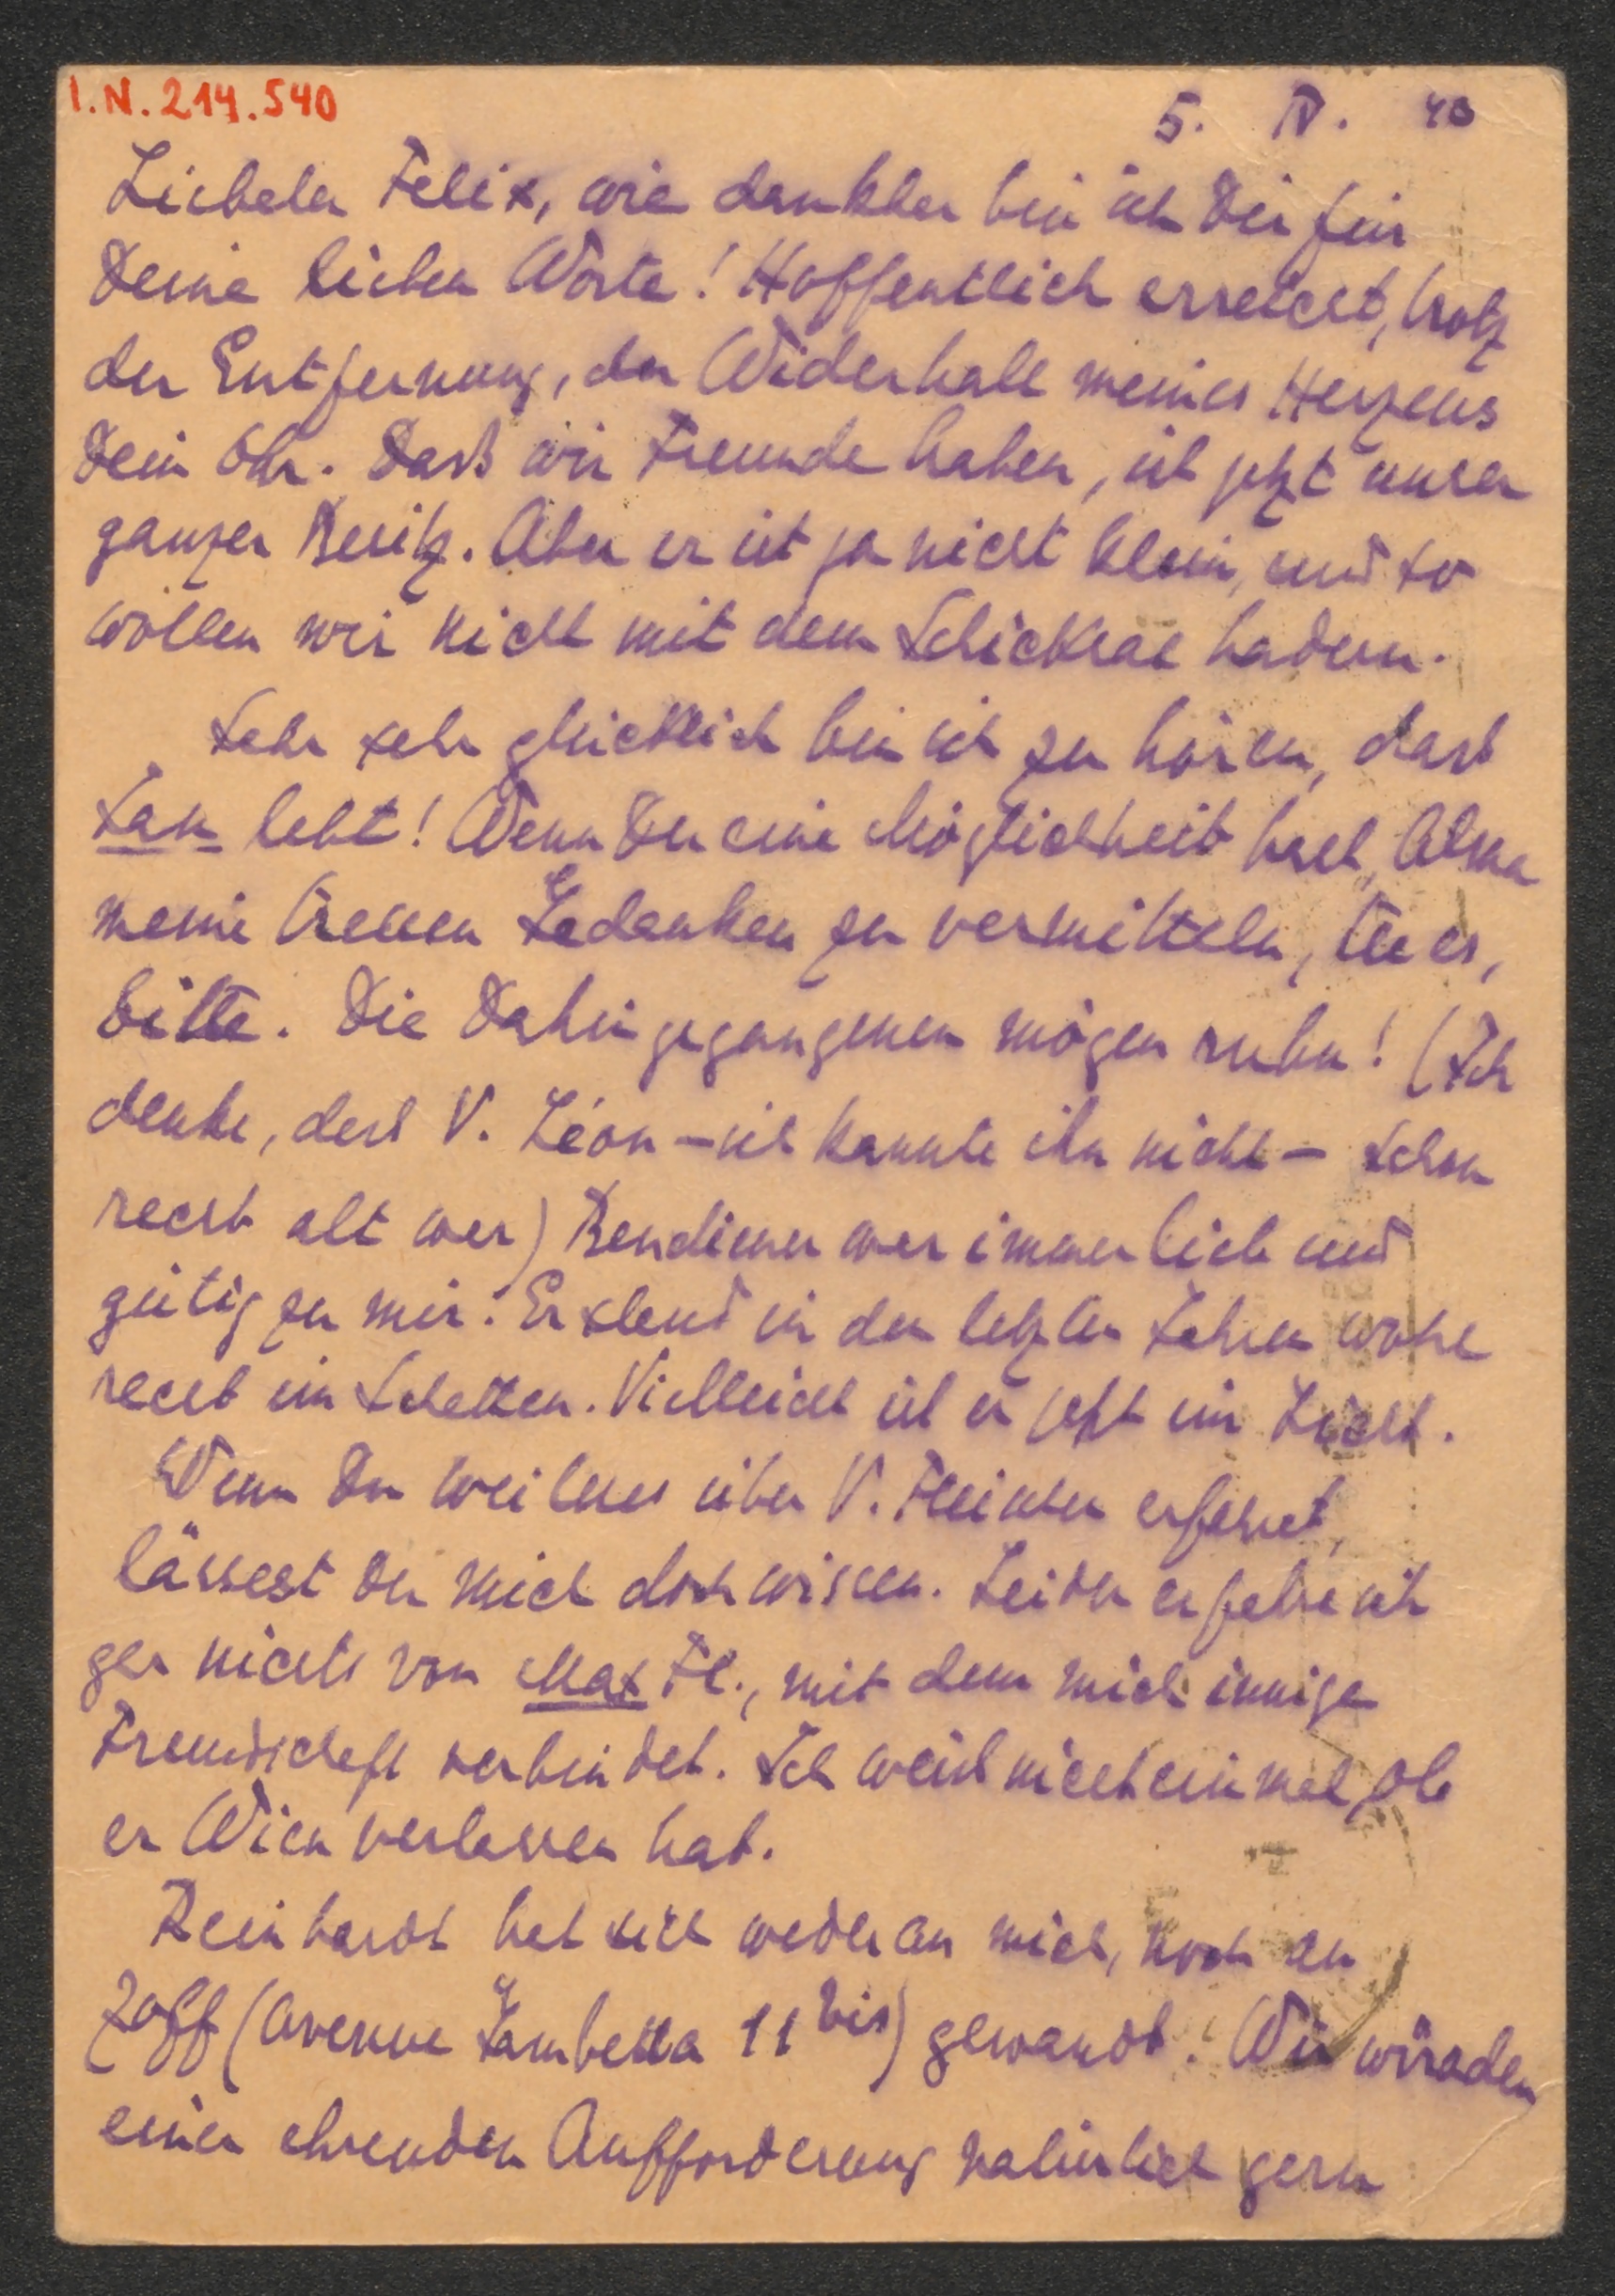 I.N. 214.540
5. IV. 40
Liebster Felix, wie dankbar bin ich Dir für
Deine lieben Worte! Hoffentlich erreicht, trotz
der Entfernung, der Widerhall meines Herzens
Dein Ohr. Dass wir Freunde haben, ist jetzt unser
ganzer Besitz. Aber er ist ja nicht klein, und so
wollen wir nicht mit dem Schicksal hadern.
Sehr sehr glücklich bin ich zu hören, dass
San lebt! Wenn Du eine Möglichkeit hast,
meine treuen Gedanken zu vermitteln, tu es,
bitte. Die Dahingegangenen mögen ruhn! (Ich
denke, dass V. Léon – ich kannte ihn nicht – schon
recht alt war) Bendiener war immer lieb und
gütig zu mir. Er stand in den letzten Jahren wohl
recht im Schatten. Vielleicht ist er jetzt im Licht.
Wenn Du weiteres über V. erfährst,
lässest Du mich doch wissen. Leider erfahre ich
gar nichts von Max Fl., mit dem mich innige
Freundschaft verbindet. Ich weiss nicht einmal, ob
er Wien verlassen hat.
Reinhardt hat sich weder an mich, noch an
Zoff (Avenue Gambetta 11 bis) gewandt. Wir würden
einer ehrenden Aufforderung natürlich gern